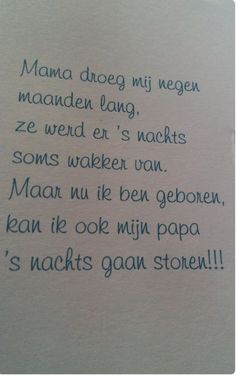 Mama droeg mij negen
maanden lang,
ze werd er 's nachts
soms wakker van.
Maar nu ik ben geboren,
kan ik ook mijn papa
's nachts gaan storen!!!